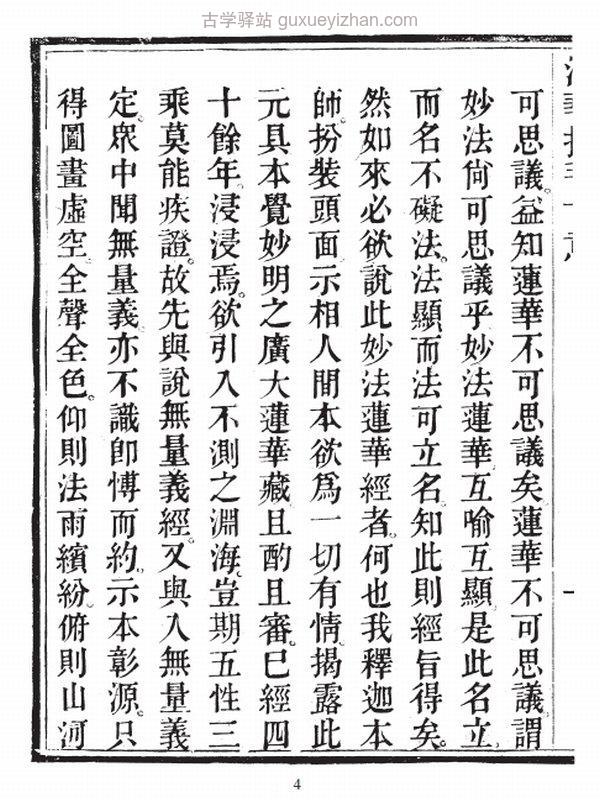 古学驿站 guxueyizhan.com
可思議。益知蓮華不可思議矣蓮華不可思議謂
妙法尙可思議乎妙法蓮華互喻互顯是此名立
而名不礙法。法顯而法可立名。知此則經旨得矣。
然如來必欲說此妙法蓮華經者。何也我釋迦本
師。扮裝頭面示相人間本欲爲一切有情。揭露此
元具本覺妙明之廣大蓮華藏且酌且審。巳經四
十餘年。浸浸焉。欲引入不測之淵海。豈期五性三
乘莫能疾證。故先與說無量義經。又與入無量義
定。眾中聞無量義亦不識卽博而約。示本彰源。只
得圖畫虛空。全聲全色。仰則法雨繽紛。俯則山河
4